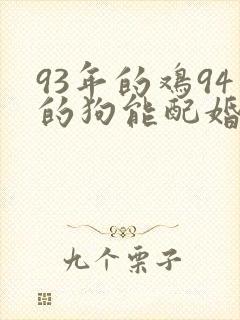 93年的鸡94
的狗能配婚
九个栗子